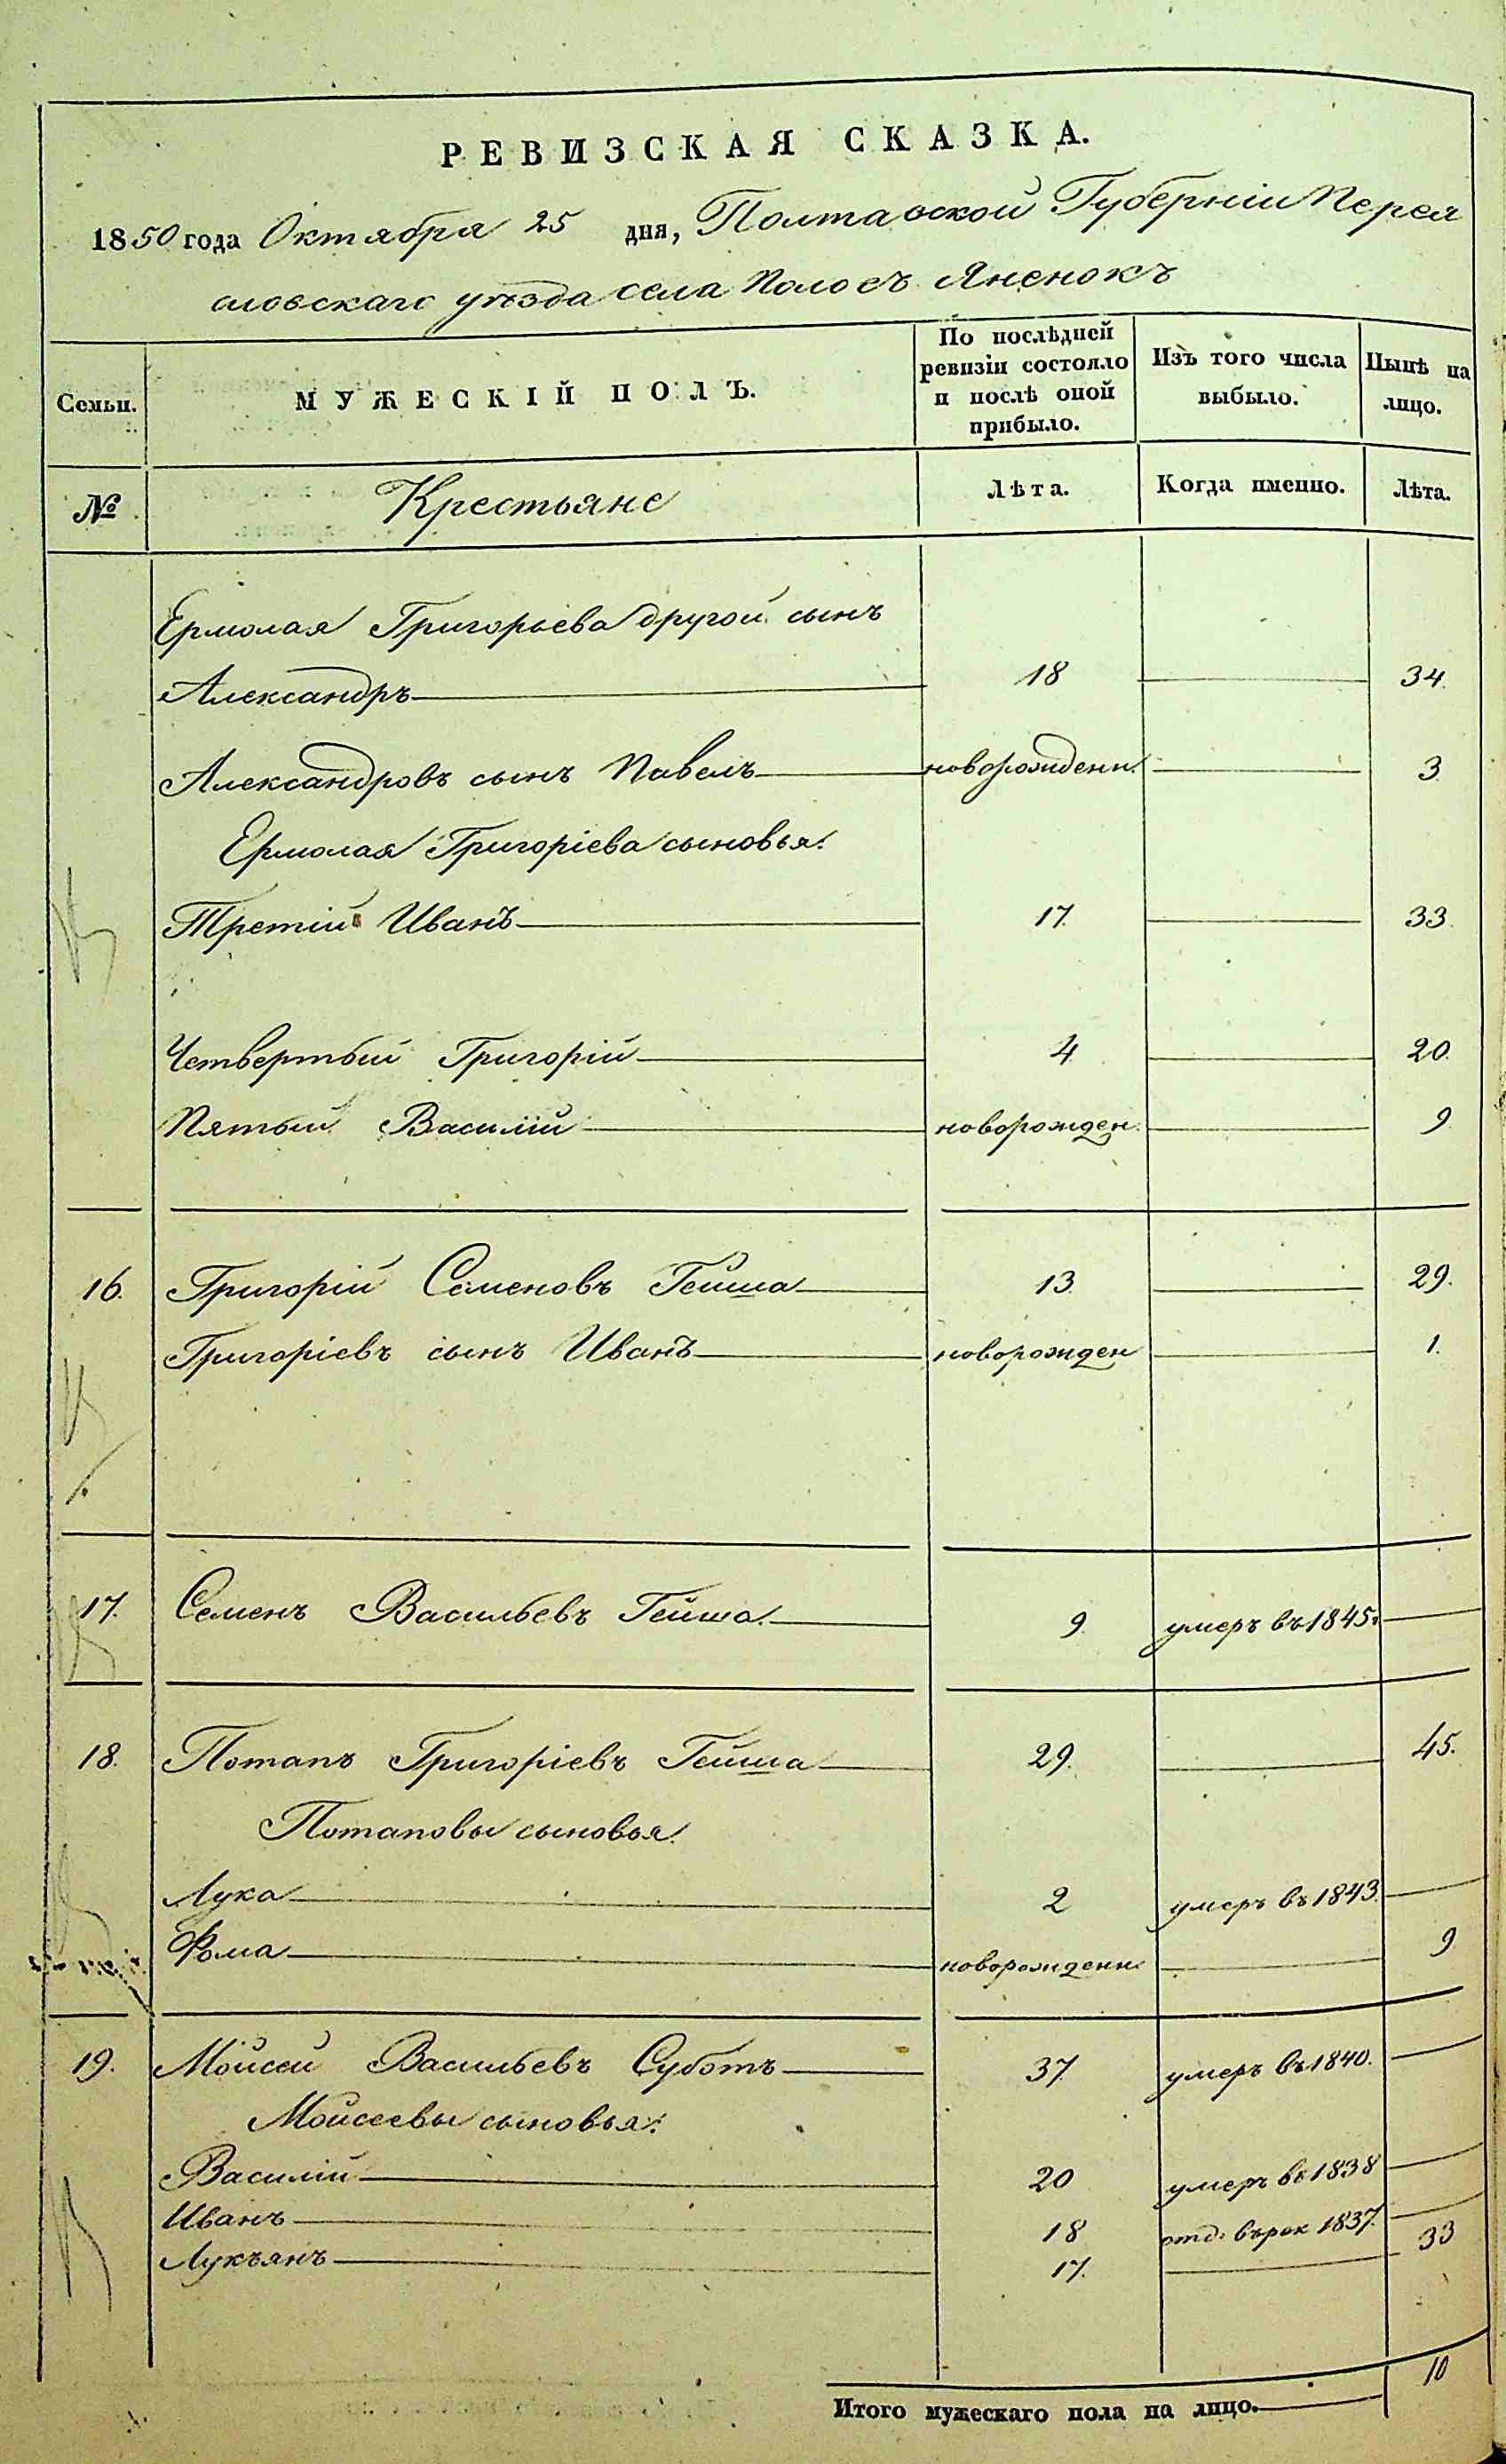 РЕВИЗСКАЯ СКАЗКА.
1850 года Октября 25 дня, Полтавской Губерніи Перея
словскаго уѣзда села Полосъ Яненокъ
Семьи.
МУЖЕСКІЙ ПОЛЪ.
По послѣдней
ревизіи состояло
и послѣ оной
прибыло.
Изъ того числа
выбыло.
Нынѣ на
лицо.
№
Крестьяне
Лѣта.
Когда именно.
Лѣта.
Ермолая Григорьева другой сынъ
Александръ 18 34.
Александровъ сынъ Павелъ новорожденн. 3
Ермолая Григоріева сыновья:
Третій Иванъ 17. 33.
Четвертый Григорій 4 20.
Пятый Василій новорожден. 9
16. Григорій Семеновъ Гейша 13 29.
Григоріевъ сынъ Иванъ новорожден 1.
17. Семенъ Васильевъ Гейша. 9. умеръ въ 1845г
18. Потапъ Григоріевъ Гейша 29. 45.
Потаповы сыновья.
Лука 2 умеръ въ 1843.
Фома новорожденн. 9
19. Мойсей Васильевъ Суботъ 37 умеръ въ 1840.
Моисеевы сыновья:
Василій 20 умеръ въ 1838
Иванъ 18 отд: въ рек 1837.
Лукъянъ 17. 33
Итого мужескаго пола на лицо. 10